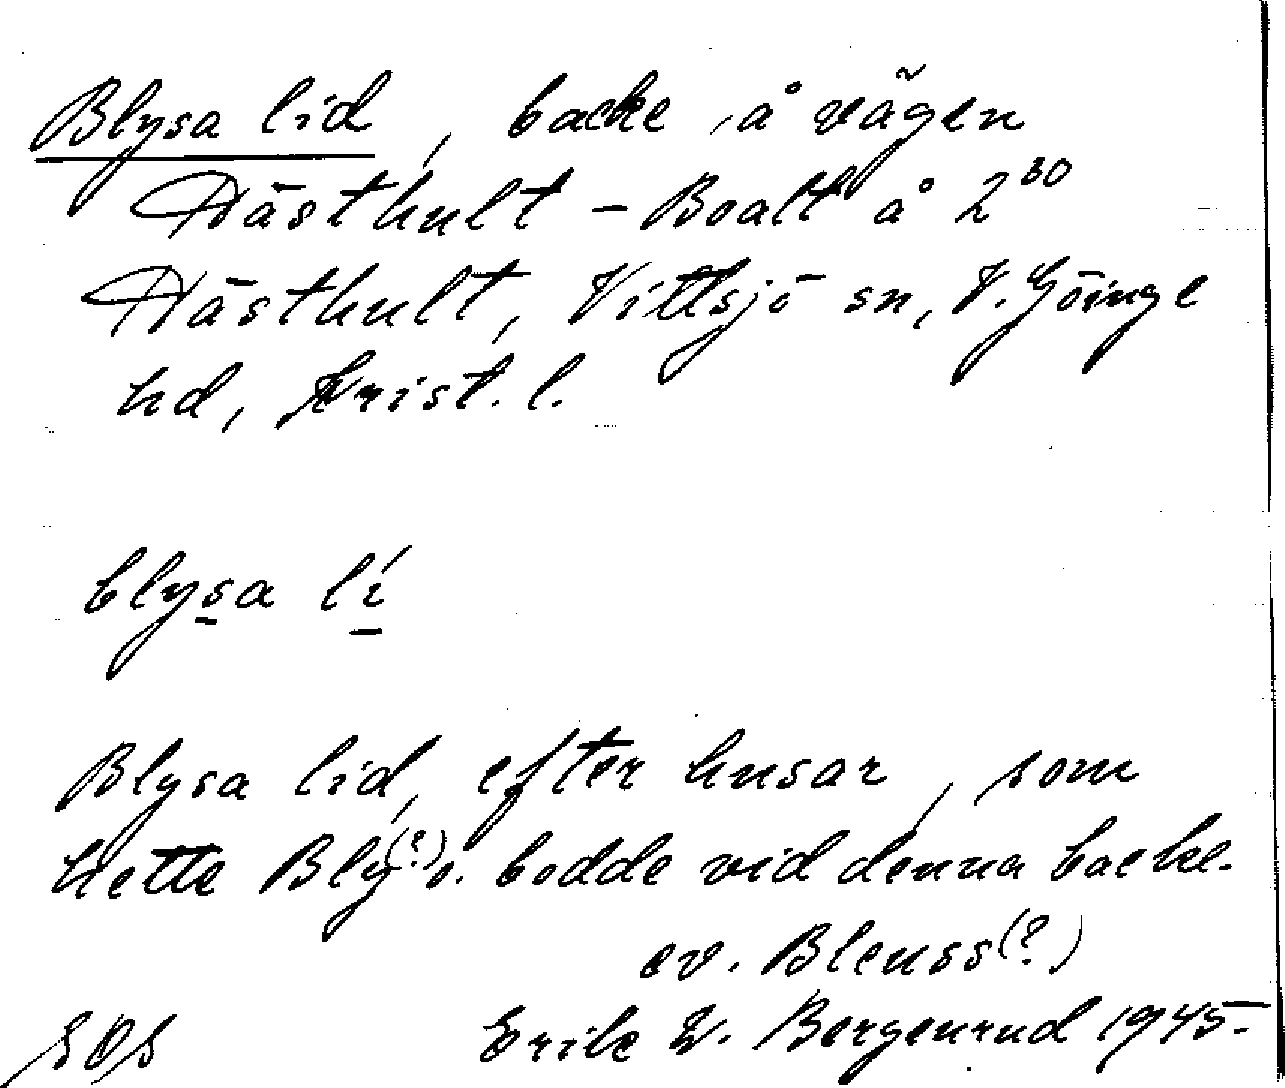 Blysa lid, backe, å vägen
Hästhult - Boalt å 2³⁰
Hästhult, Vittsjö sn, V. Göinge
hd, Krist. l.
blysa lí
Blysa lid, efter husar, som
hette Bly(?) o. bodde vid denna backe.
ev. Bleuss(?)
Erik W. Bergenrud 1945.